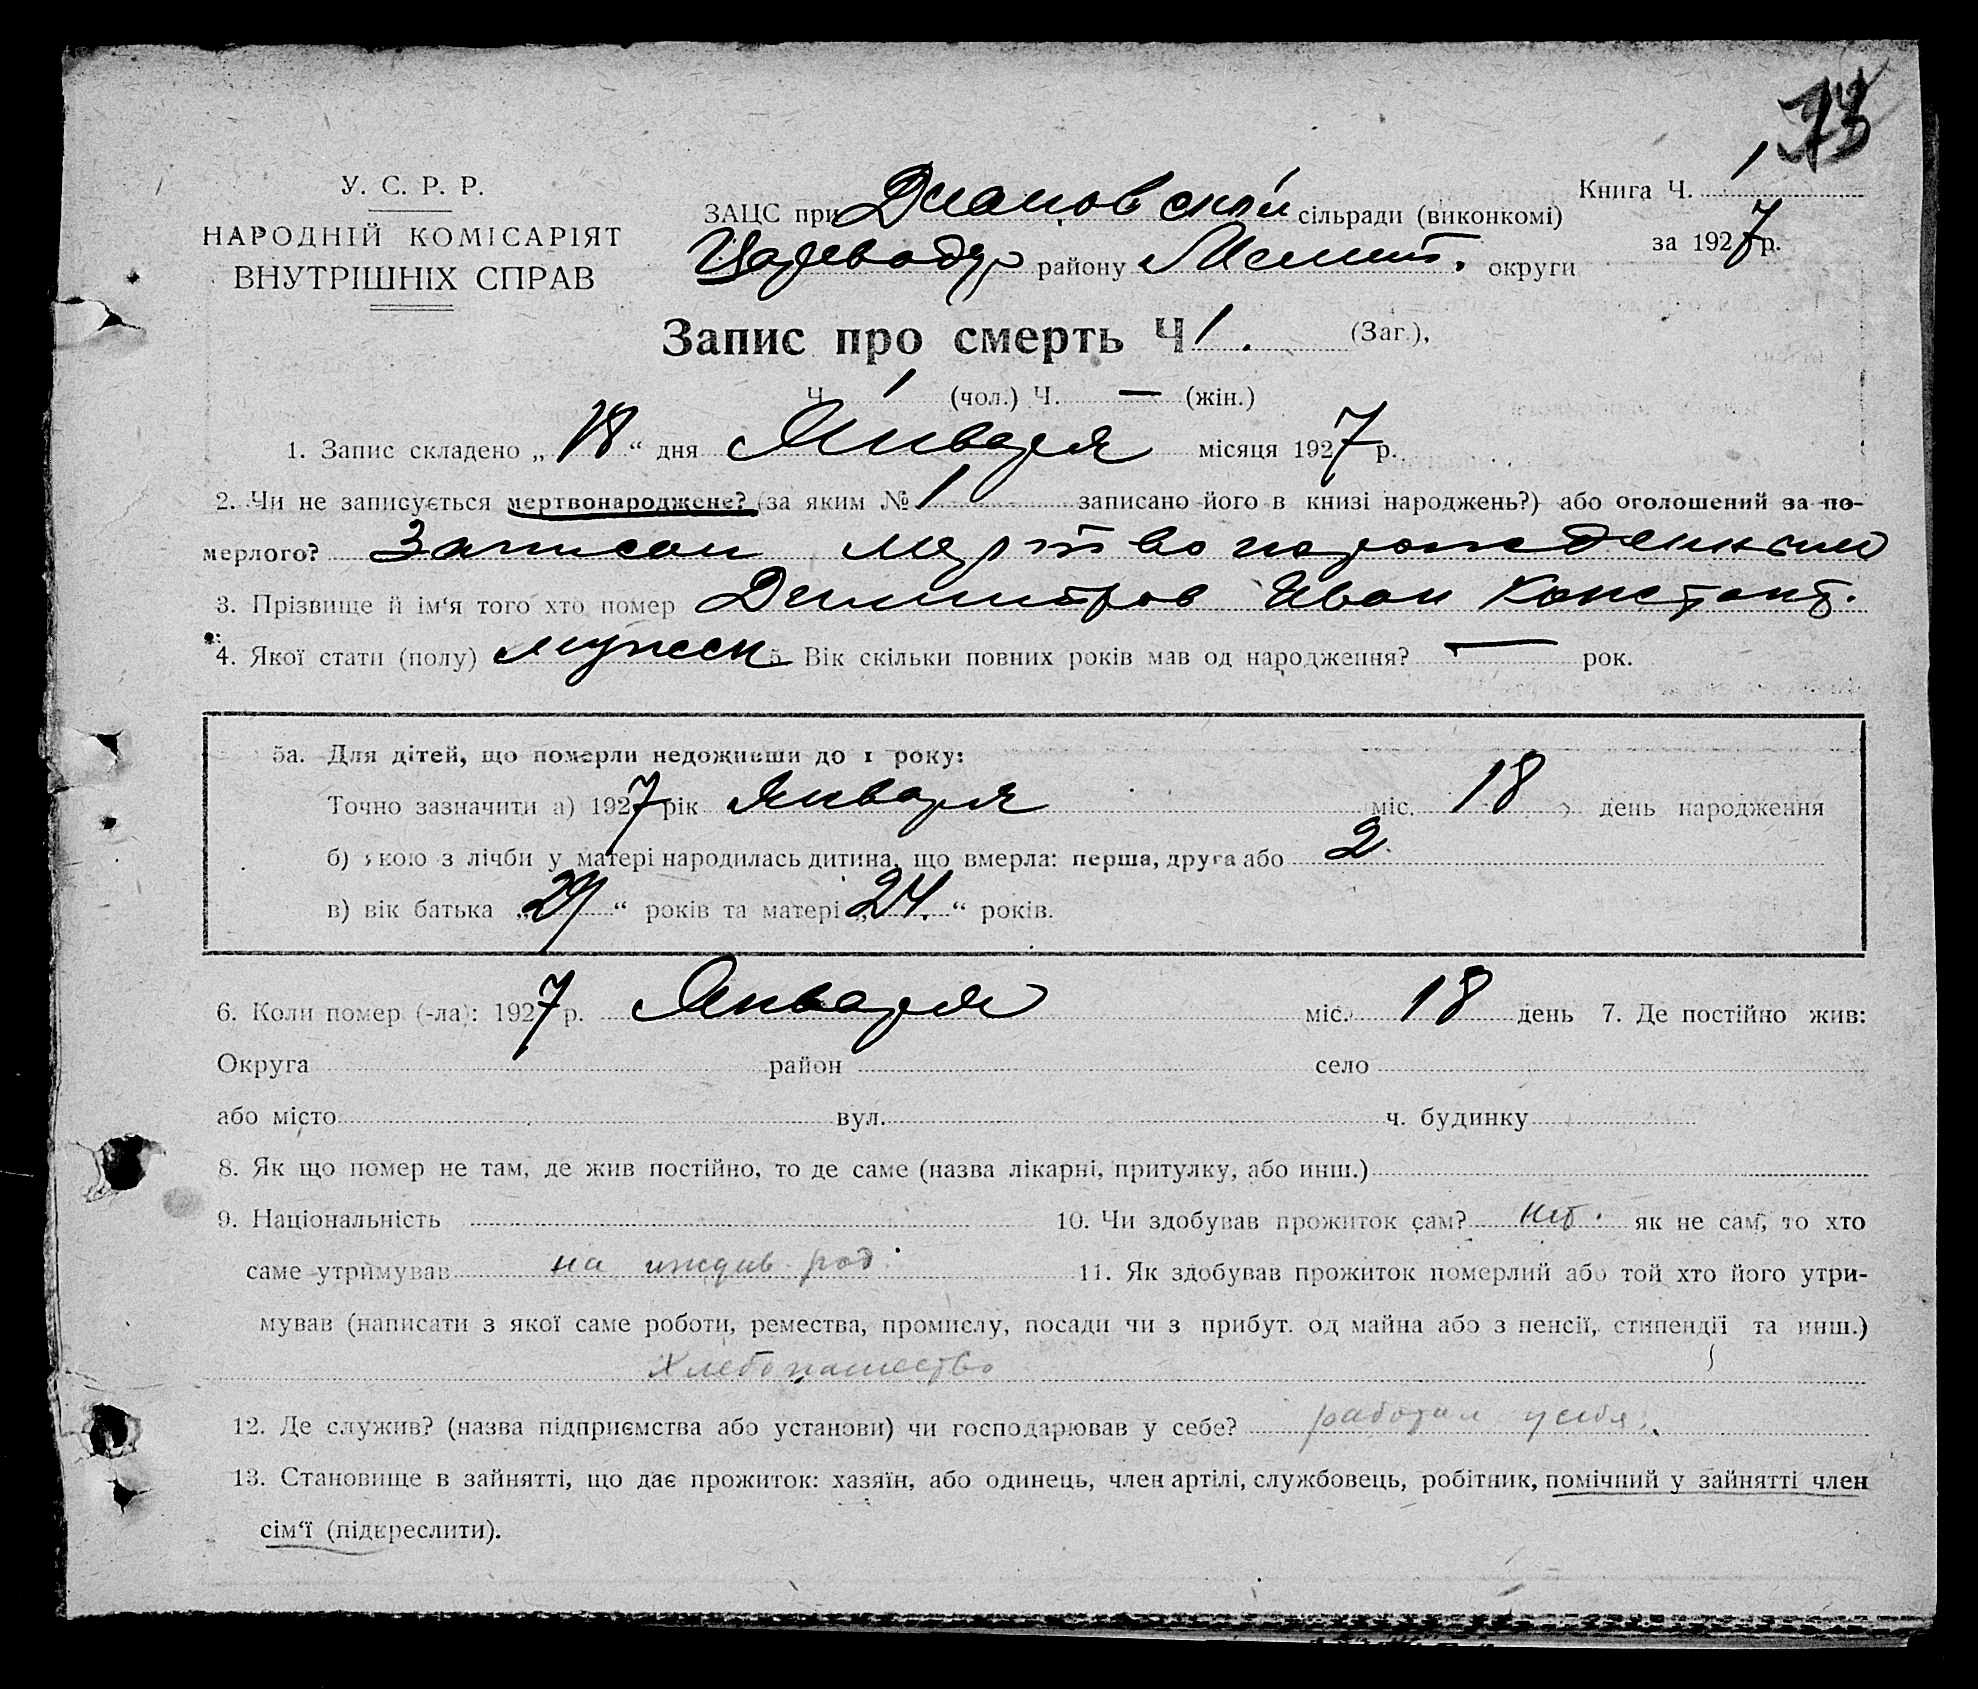 73
У. С. Р. Р.
НАРОДНІЙ КОМІСАРІЯТ
ВНУТРІШНІХ СПРАВ
Книга Ч. 1
за 1927 р.
ЗАЦС при Диановской сільради (виконкомі)
Цареводар району Мелит. округи
Запис про смерть Ч 1. (Заг.),
Ч 1 (чол.) Ч. — (жін.)
1. Запис складено „18“ дня Января місяця 1927 р.
2. Чи не записується мертвонароджене? (за яким № 1 записано його в книзі народжень?) або оголошений за по-
мерлого? Записан мертво нарожденным
3. Прізвище й ім‘я того хто помер Димитров Иван Констант.
4. Якої стати (полу) мужск 5. Вік скільки повних років мав од народження? — рок.
5а. Для дітей, що померли недоживши до 1 року:
Точно зазначити а) 1927 рік Января міс. 18 день народження
б) якою з лічби у матері народилась дитина, що вмерла: перша, друга або 2.
в) вік батька „29“ років та матері „24.“ років.
6. Коли помер (-ла): 1927 р. Января міс. 18 день 7. Де постійно жив:
Округа район село
або місто вул. ч. будинку
8. Як що помер не там, де жив постійно, то де саме (назва лікарні, притулку, або инш.)
9. Національність 10. Чи здобував прожиток сам? нет. як не сам, то хто
саме утримував на иждив. род. 11. Як здобував прожиток померлий або той хто його утри-
мував (написати з якої саме роботи, ремества, промислу, посади чи з прибут. од майна або з пенсії, стипендії та инш.)
Хлебопашество
12. Де служив? (назва підприємства або установи) чи господарював у себе? работал у себя.
13. Становище в зайнятті, що дає прожиток: хазяїн, або одинець, член артілі, службовець, робітник, помічний у зайнятті член
сім‘ї (підкреслити).